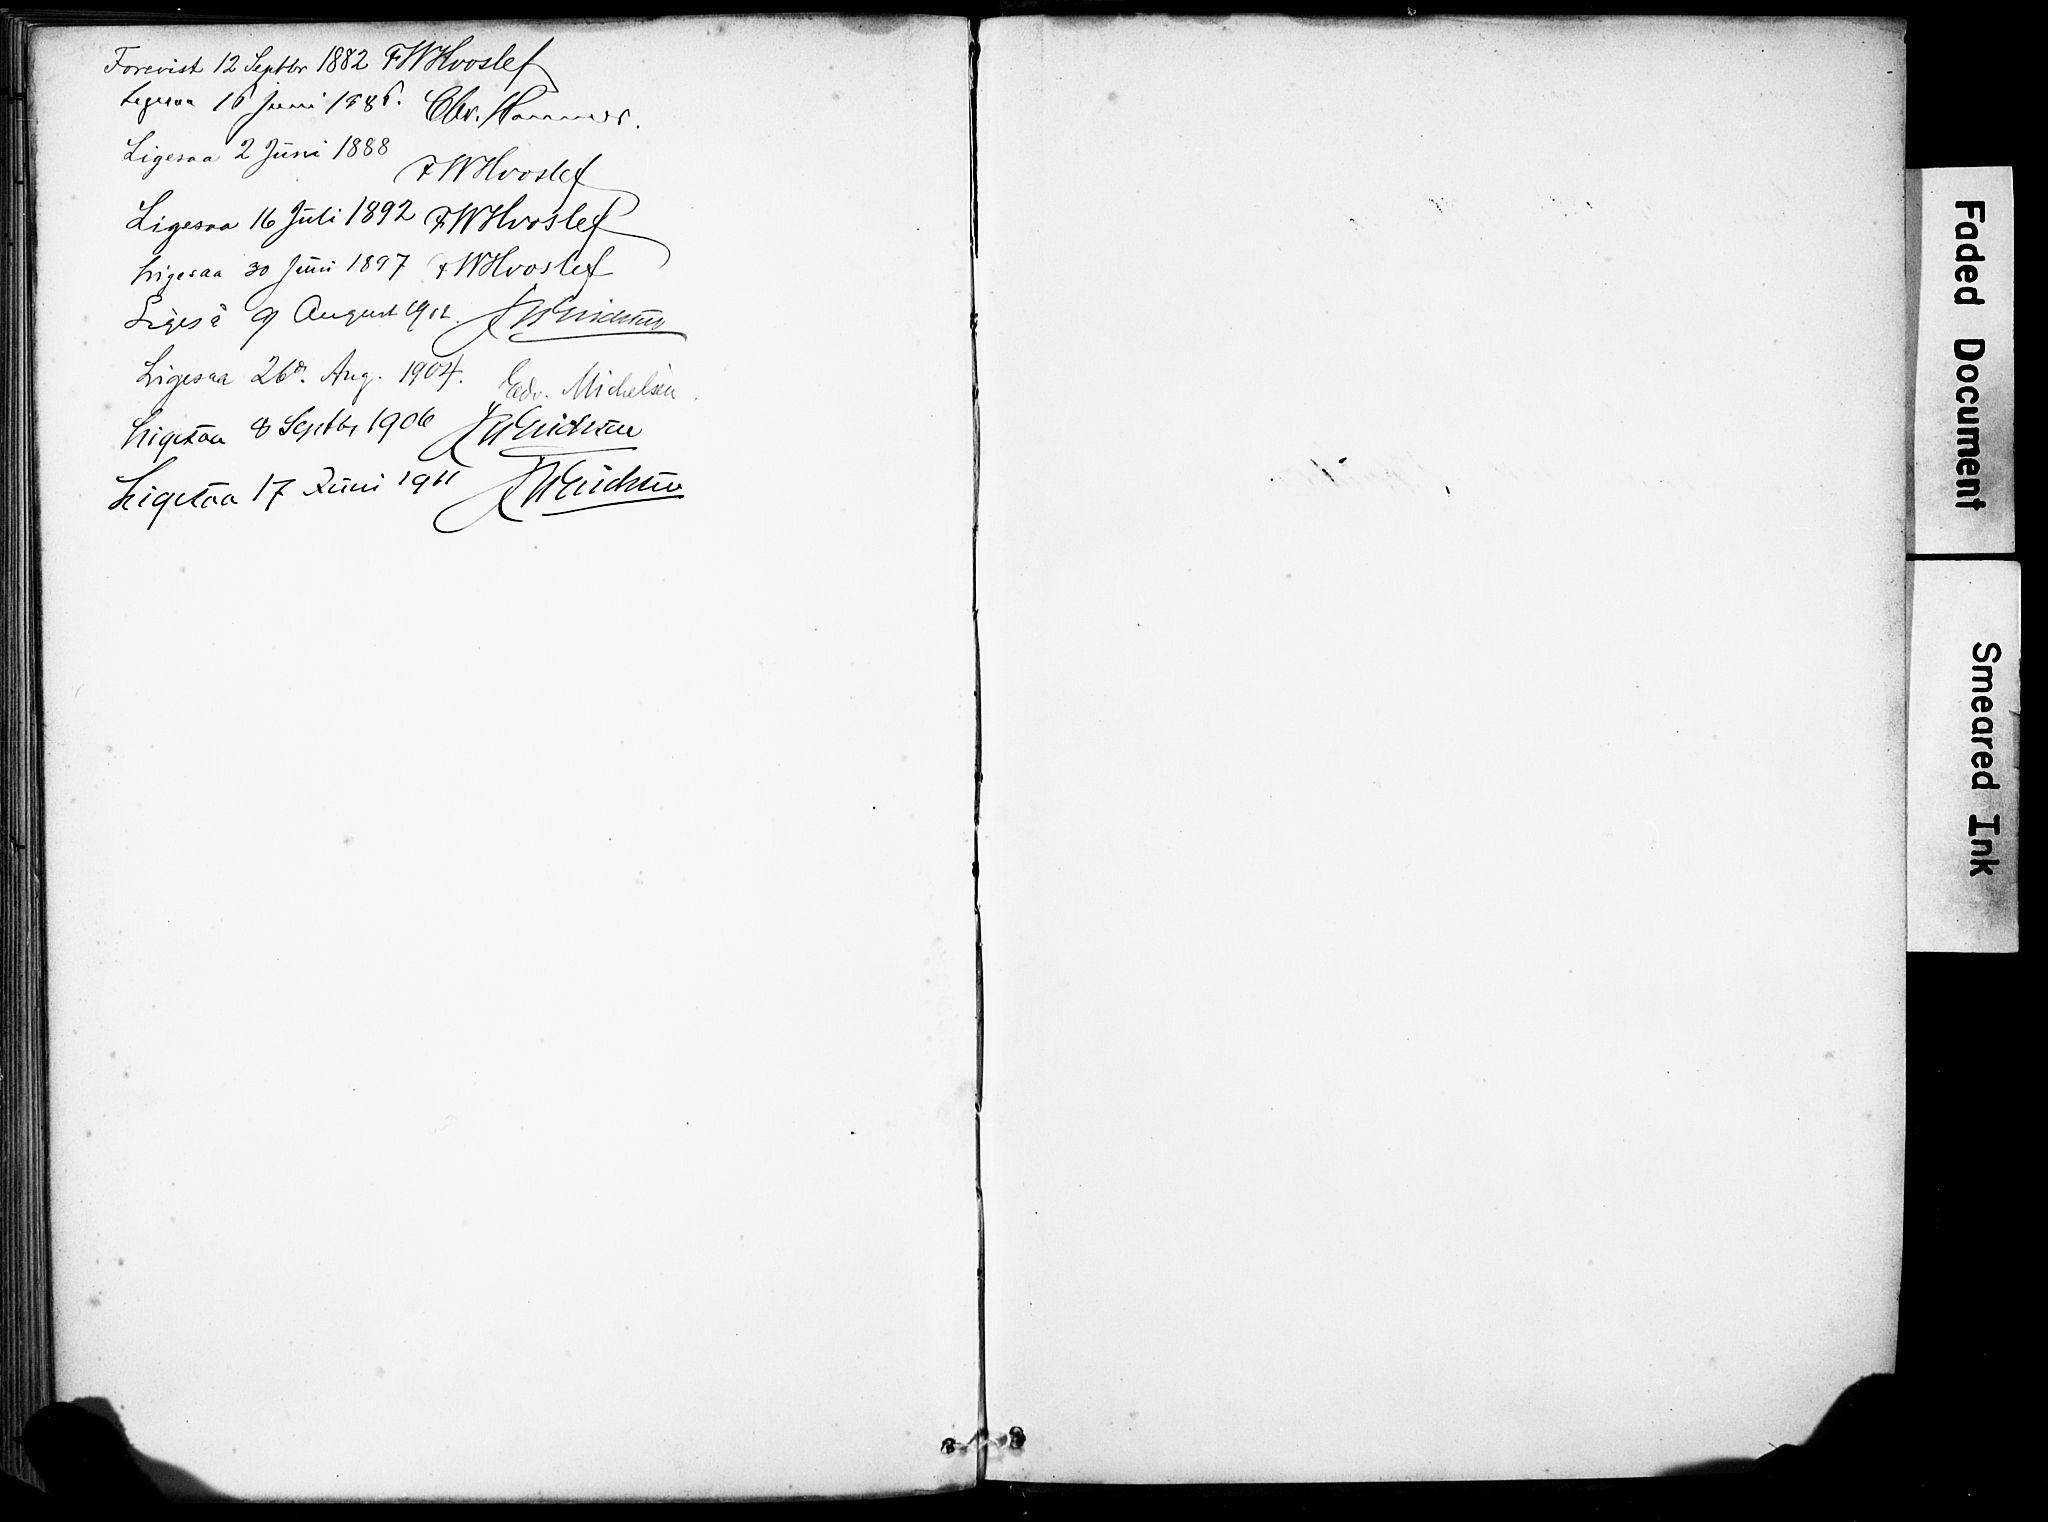 Forevist 12 Septbr 1882 FWHvoslef
Ligesaa 16 Juni 1886. Chr. Hammer.
Ligesaa 2 Juni 1888
FWHvoslef
Ligesaa 16 Juli 1892 FWHvoslef
Ligesaa 30 Juni 1897 FWHvoslef
Ligeså 9 August
Ligesaa 26de. Aug. 1904. Edv. Michelsen.
Ligesaa 8 Septbr 1906
Ligesaa 17 Juni 1911
Faded Document
Smeared Ink